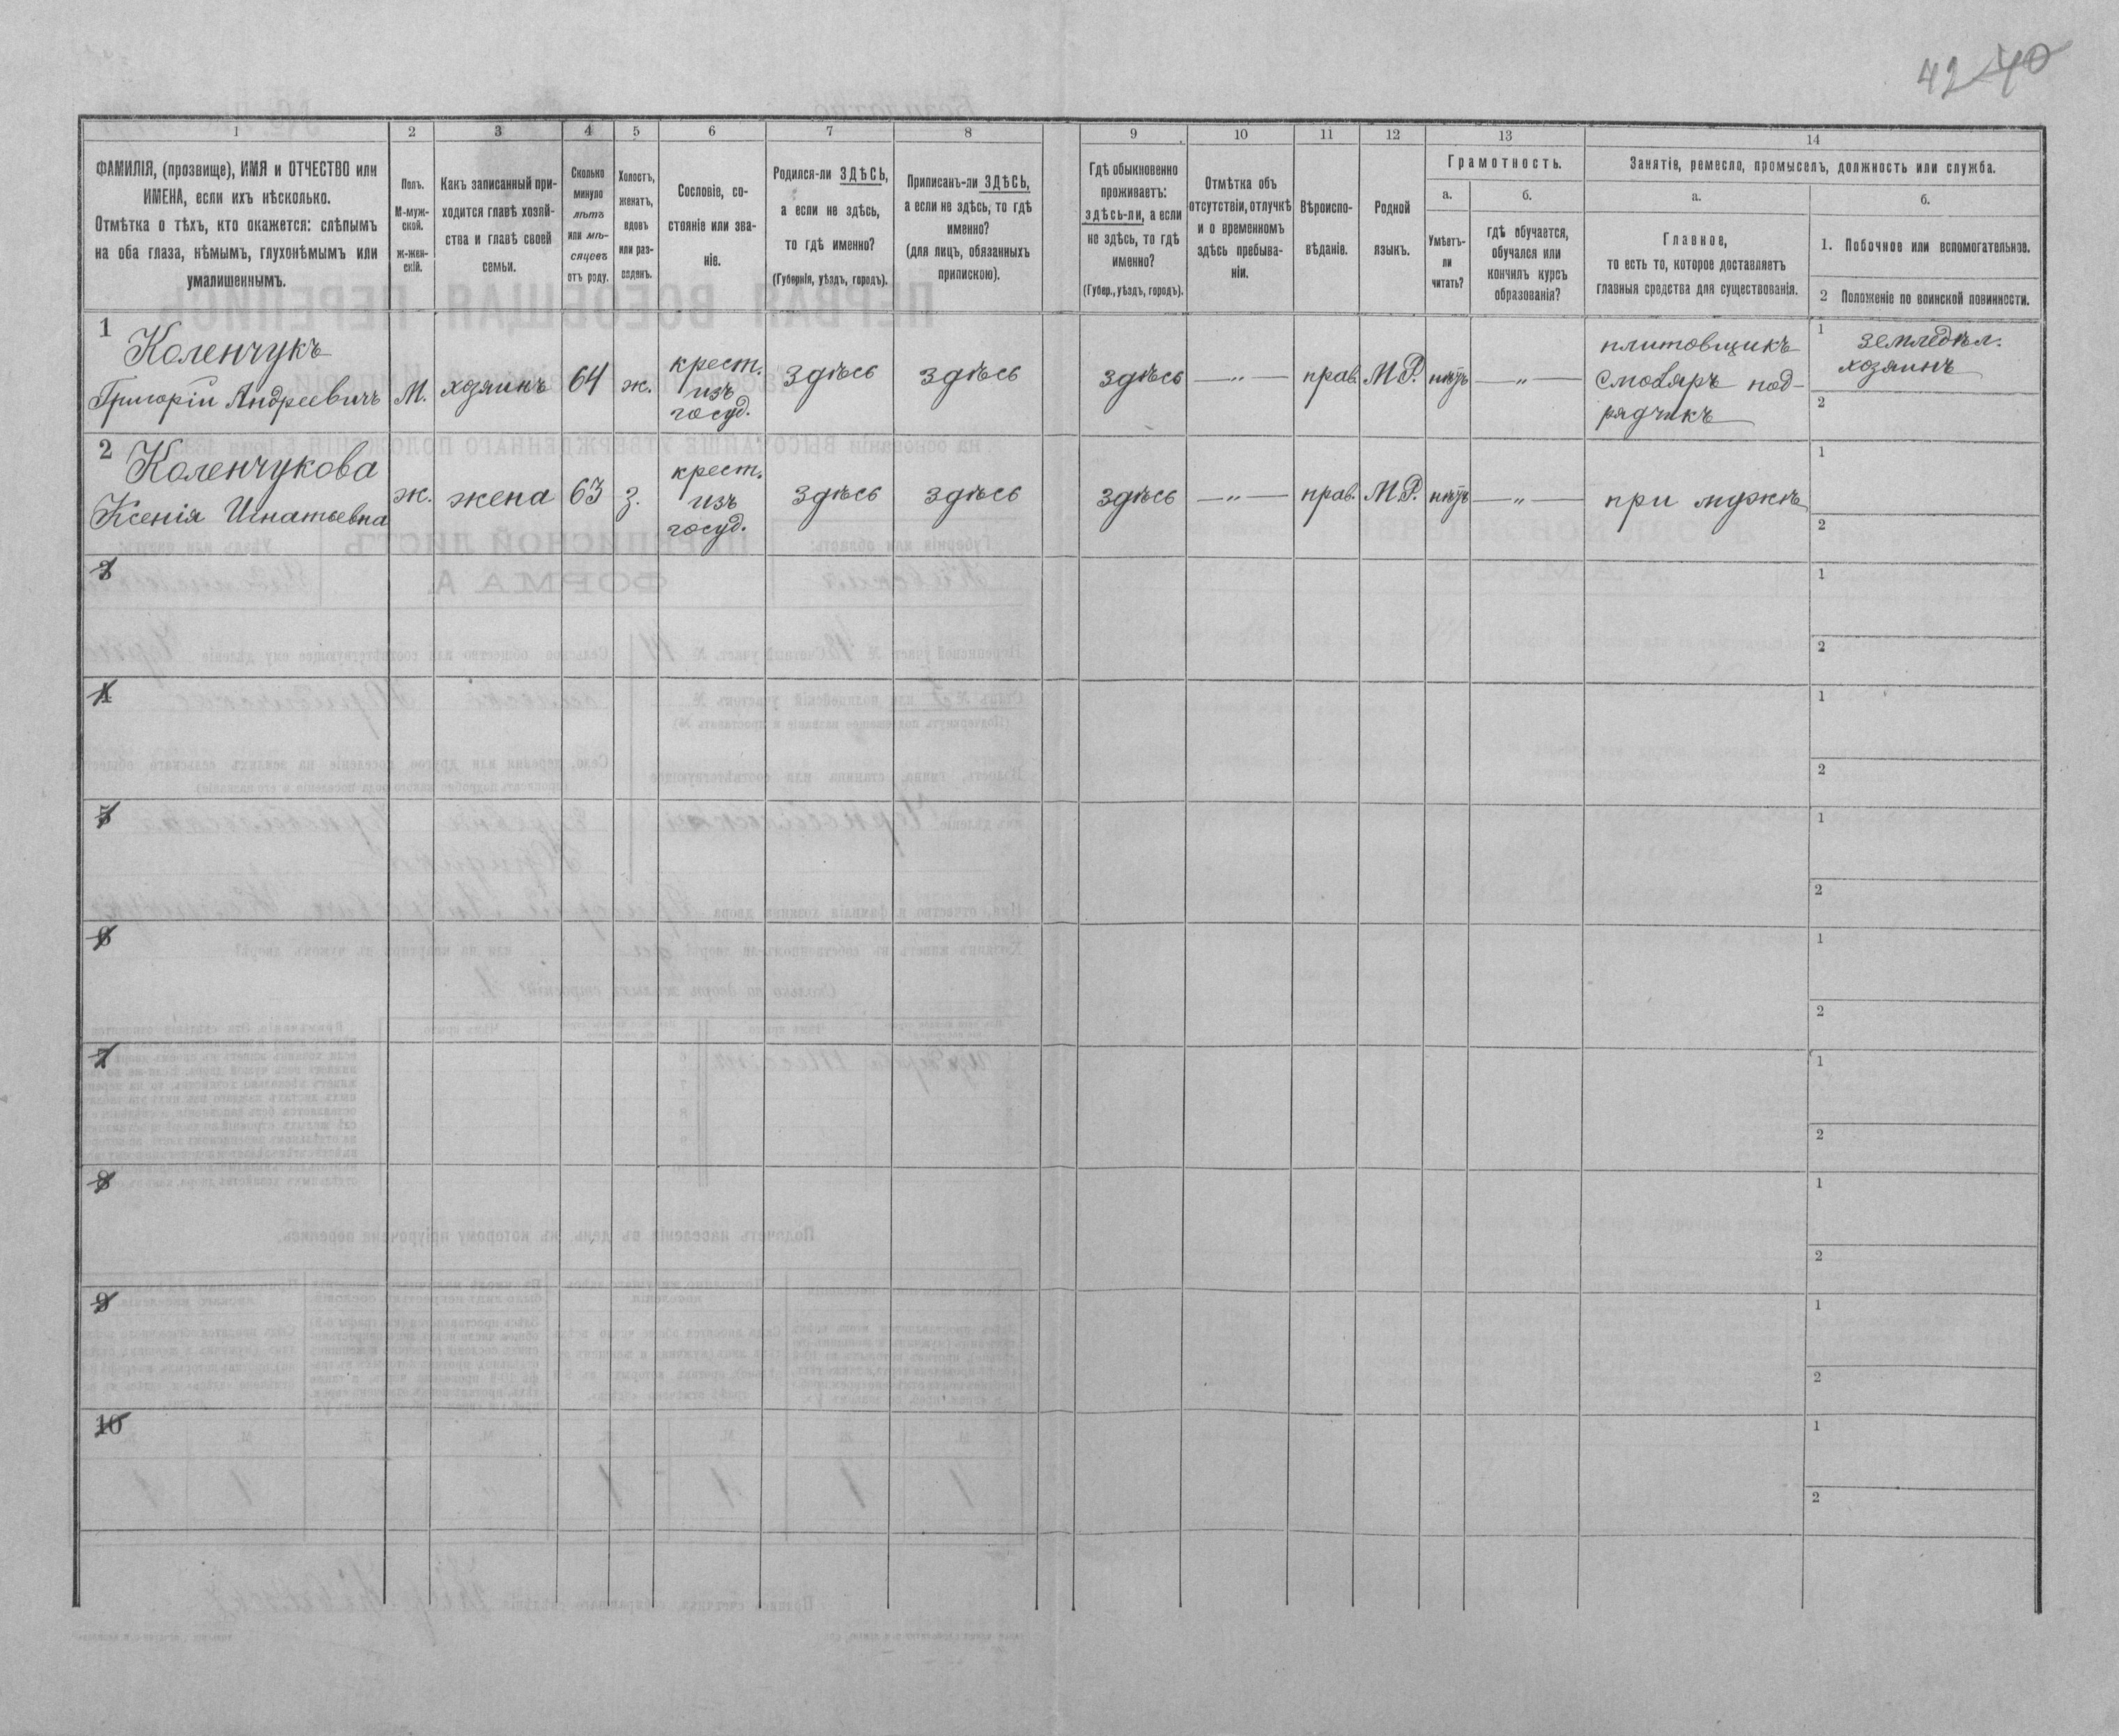 42 40
1 2 3 4 5 6 7 8 9 10 11 12 13 14
ФАМИЛІЯ, (прозвище), ИМЯ и ОТЧЕСТВО или
ИМЕНА, если ихъ нѣсколько.
Отмѣтка о тѣхъ, кто окажется: слѣпымъ
на оба глаза, нѣмымъ, глухонѣмымъ или
умалишеннымъ.
Полъ.
М-муж-
ской.
ж-жен-
скій.
Какъ записанный при-
ходится главѣ хозяй-
ства и главѣ своей
семьи.
Сколько
минуло
лѣтъ
или мѣ-
сяцевъ
отъ роду.
Холостъ,
женатъ,
вдовъ
или раз-
веденъ.
Сословіе, со-
стояніе или зва-
ніе.
Родился-ли ЗДѢСЬ,
а если не здѣсь,
то гдѣ именно?
(Губернія, уѣздъ, городъ).
Приписанъ-ли ЗДѢСЬ,
а если не здѣсь, то гдѣ
именно?
(для лицъ, обязанныхъ
припискою).
Гдѣ обыкновенно
проживаетъ:
здѣсь-ли, а если
не здѣсь, то гдѣ
именно?
(Губер., уѣздъ, городъ).
Отмѣтка объ
отсутствіи, отлучкѣ
и о временномъ
здѣсь пребыва-
ніи.
Вѣроиспо-
вѣданіе.
Родной
языкъ.
Грамотность.
а.
Умѣетъ-
ли
читать?
б.
гдѣ обучается,
обучался или
кончилъ курсъ
образованія?
Занятіе, ремесло, промыселъ, должность или служба.
а.
Главное,
то есть то, которое доставляетъ
главныя средства для существованія.
б.
1. Побочное или вспомогательное.
2 Положеніе по воинской повинности.
1
Коленчукъ
Григорій Андреевичъ
М.
хозяинъ
64
ж.
крест.
изъ
госуд.
здѣсь
здѣсь
здѣсь
— „ —
прав.
М.Р.
нѣтъ
— „ —
плитовщикъ
смоляръ под-
рядчикъ
1 земледѣл.
хозяинъ
2
2
Коленчукова
Ксенія Игнатьевна
ж.
жена
63
з.
крест.
изъ
госуд.
здѣсь
здѣсь
здѣсь
— „ —
прав.
М.Р.
нѣтъ
— „ —
при мужѣ
1
2
3
1
2
4
1
2
5
1
2
6
1
2
7
1
2
8
1
2
9
1
2
10
1
2